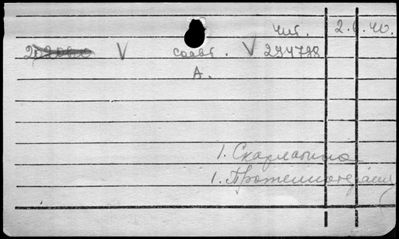 Чит. 2.6.40.
V соавт. V 294798
А.
1. Скарлатина
1. Протеинотерапия